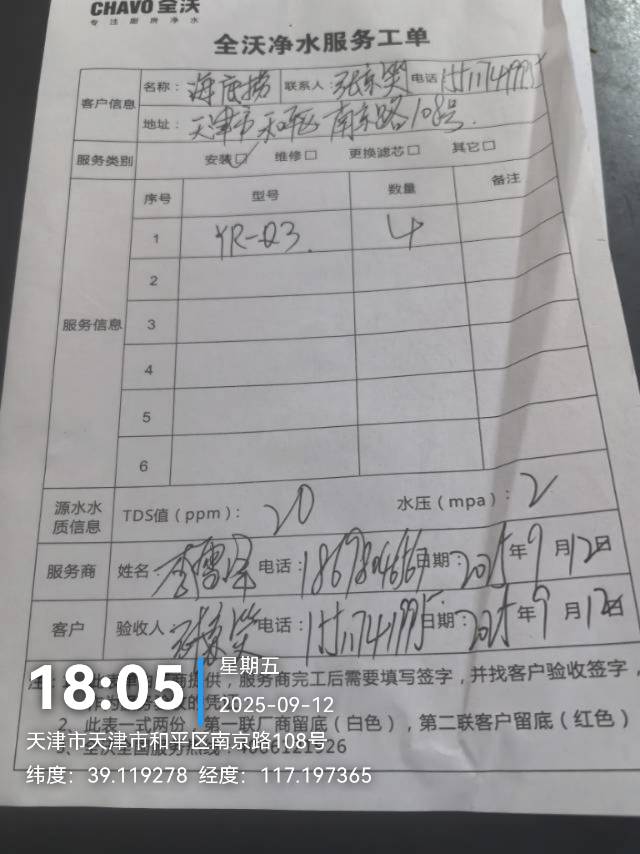 CHAVO 全沃
专注厨房净水
全沃净水服务工单
客户信息 名称：海底捞 联系人： 电话
地址：天津市和平区南京路108号.
服务类别 安装☑ 维修□ 更换滤芯□ 其它□
服务信息 序号 型号 数量 备注
1 YR-Q3. 4
2
3
4
5
6
源水水质信息 TDS值（ppm）：20 水压（mpa）：2
服务商 姓名： 电话： 日期：2025年9月12日
客户 验收人： 电话： 日期：2025年9月12日
提供，服务商完工后需要填写签字，并找客户验收签字，
2、此表一式两份，第一联厂商留底（白色），第二联客户留底（红色）
18:05
星期五
2025-09-12
天津市天津市和平区南京路108号
纬度：39.119278 经度：117.197365